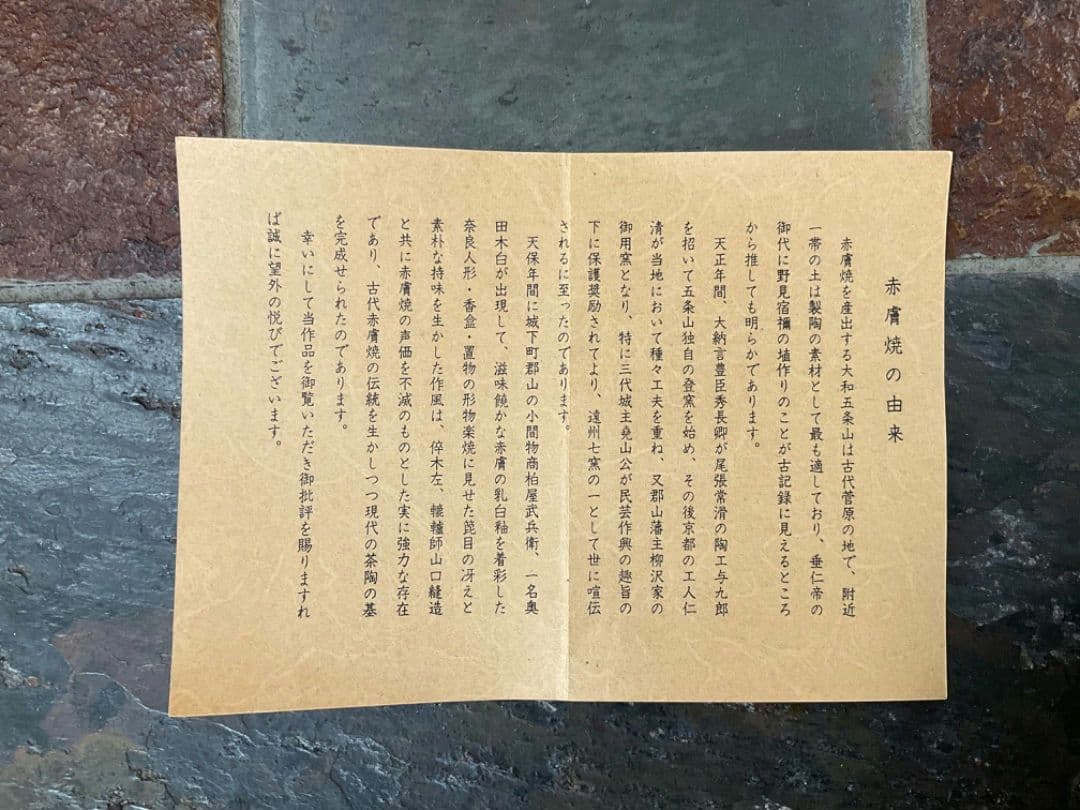 赤膚焼の由来
赤膚焼を産出する大和五条山は古代菅原の地で、附近
一帯の土は製陶の素材として最も適しており、垂仁帝の
御代に野見宿禰の埴作りのことが古記録に見えるところ
から推しても明らかであります。
天正年間、大納言豊臣秀長卿が尾張常滑の陶工与九郎
を招いて五条山独自の登窯を始め、その後京都の工人仁
清が当地において種々工夫を重ね、又郡山藩主柳沢家の
御用窯となり、特に三代城主堯山公が民芸作興の趣旨の
下に保護奨励されてより、遠州七窯の一として世に喧伝
されるに至ったのであります。
天保年間に城下町郡山の小間物商柏屋武兵衛、一名奥
田木白が出現して、滋味饒かな赤膚の乳白釉を着彩した
奈良人形・香盒・置物の形物楽焼に見せた箆目の冴えと
素朴な持味を生かした作風は、倅木左、轆轤師山口縫造
と共に赤膚焼の声価を不滅のものとした実に強力な存在
であり、古代赤膚焼の伝統を生かしつつ現代の茶陶の基
を完成せられたのであります。
幸いにして当作品を御覧いただき御批評を賜りますれ
ば誠に望外の悦びでございます。